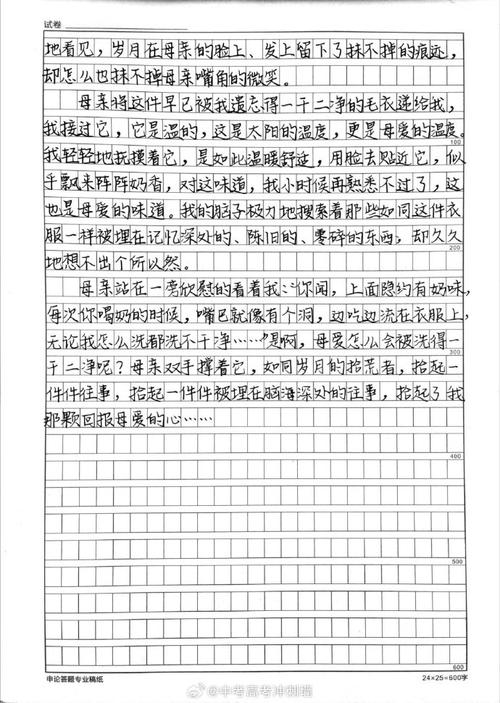 试卷
地看见，岁月在母亲的脸上、发上留下了抹不掉的痕迹，
却怎么也抹不掉母亲嘴角的微笑。
母亲将这件早已被我遗忘得一干二净的毛衣递给我，
我接过它，它是温的，这是太阳的温度，更是母爱的温度。
100
我轻轻地抚摸着它，是如此温暖舒适，用脸去贴近它，似
乎飘来阵阵奶香，对这味道，我小时候再熟悉不过了，这
也是母爱的味道。我的脑子极力地搜索着那些如同这件衣
服一样被埋在记忆深处的、陈旧的、零碎的东西，却久久
200
地想不出个所以然。
母亲站在一旁欣慰的看着我：“你闻，上面隐约有奶味，
每次你喝奶的时候，嘴巴就像有个洞，边吃边流在衣服上，
无论我怎么洗都洗不干净……”是啊，母爱怎么会被洗得一
300
干二净呢？母亲双手撑着它，如同岁月的拾荒者，拾起一
件件往事，拾起一件件被埋在脑海深处的往事，拾起了我
那颗回报母爱的心……
400
500
600
申论答题专业稿纸 24×25=600字
@中考高考冲刺喵